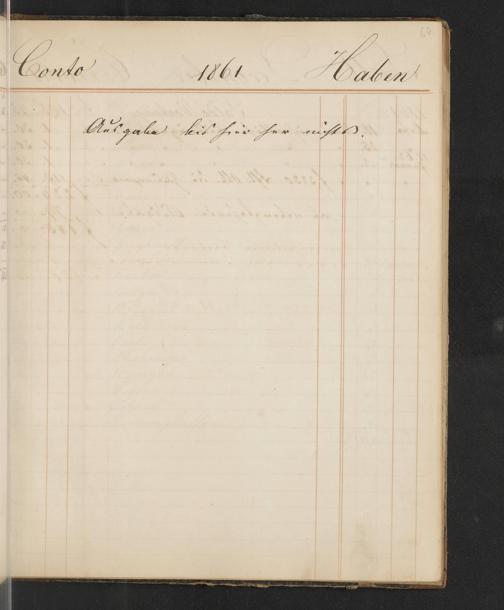 64
Conto 1861 Haben
Ausgabe bis hier her nichts.